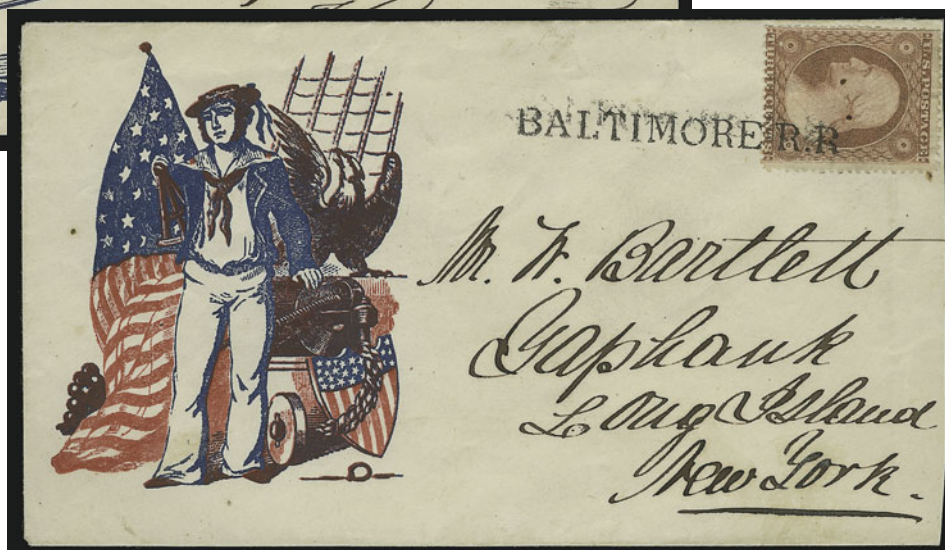 BALTIMORE R.R
U.S. POSTAGE
Mr. W. Bartlett
Yaphank
Long Island
New York.